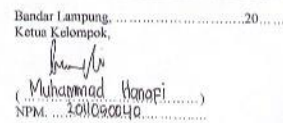 Bandar Lampung, ........................20......
Ketua Kelompok,
( Muhammad Hanafi ......)
NPM. ....2011090040................